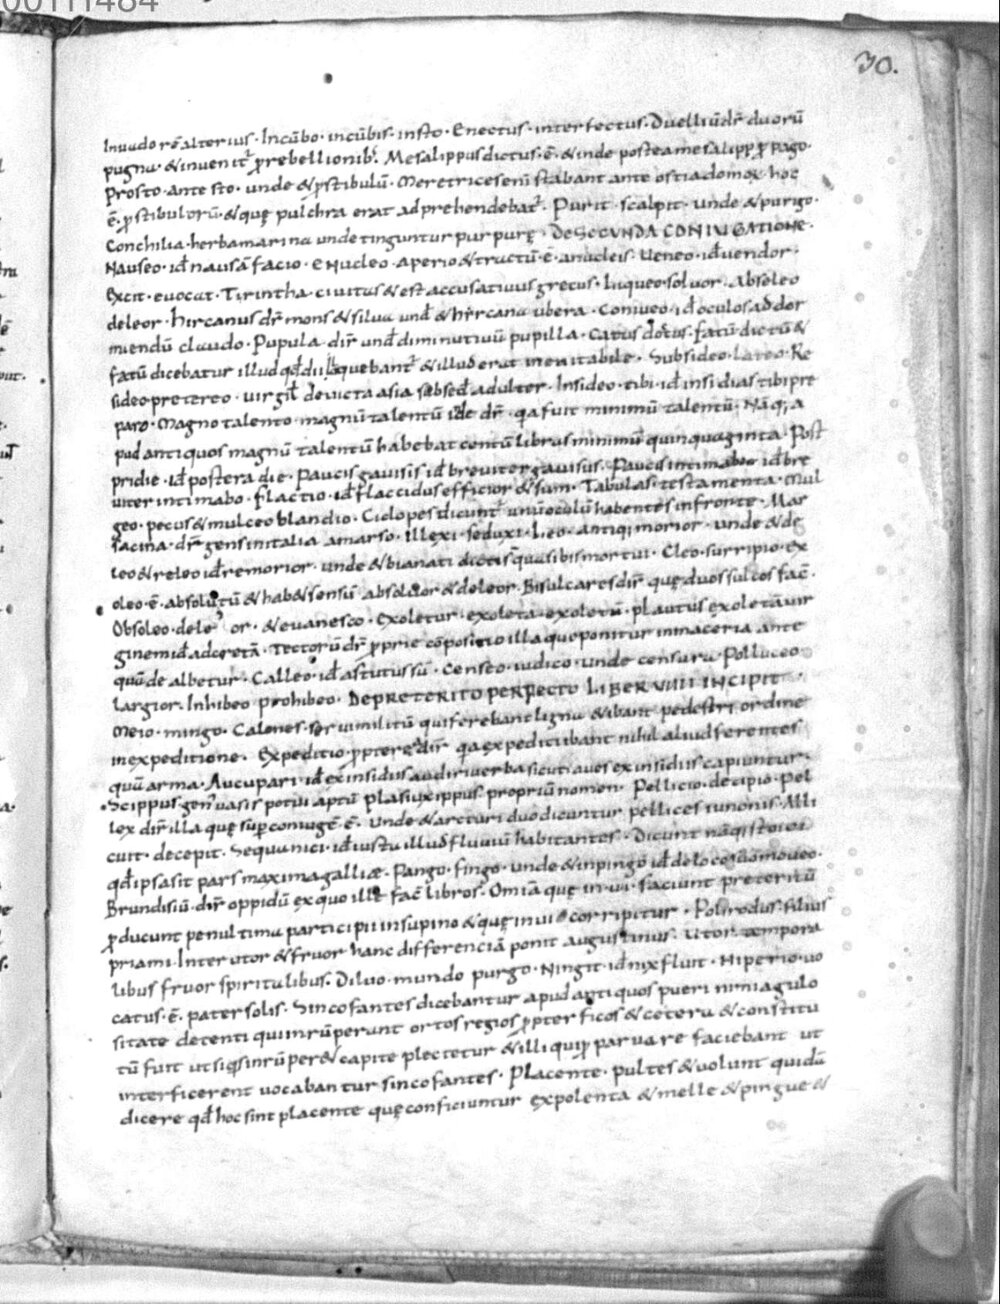 00111484
30.
Inuado rē alterius · Incūbo · incūbis · insto · Enectus · interfectus · Duelliū dr̄ duorū
pugna · & inuenit̄ ꝓ rebellionib; Mesalippus dictus · ē · & inde postea mesalipp ꝓ pago ·
Prosto · ante sto · unde & ꝓstibulū · Meretrices enī stabant ante ostia domoꝝ hoc
ē · ꝓstibulorū · & quę pulchra erat adprehendebat̄ · Purit · scalpit · unde & purigo ·
Conchilia · herba marina unde tinguntur purpurę · DE SECUNDA CONIUGATIONE ·
Nauseo · id̄ nausā facio · Enucleo · aperio & tractū · ē · a nucleis · Ueneo · id̄ uendor ·
Excit · euocat · Tirintha · ciuitas & est accusatiuus grecus · Liqueo · soluor · Absoleo
deleor · hircanus dr̄ mons & silua und̄ & hircana ubera · Coniueo · id̄ oculos ad dor
miendū claudo · Pupula dir̄ und̄ diminutiuū pupilla · Catus doctus · fatū dictū &
fatū dicebatur illud qd̄ dii loquebant̄ & illud erat ineuitabile · Subsideo · lateo · Re
sideo · pretereo · uirgil̄ deuicta asia subsed̄ adulter · Insideo · tibi · id̄ insidias tibi pre
paro · Magno talento · magnū talentū ide dr̄ · qa fuit minimū talentū · Nāq; a
pud antiquos magnū talentū habebat centū libras minimū quinquaginta · Post
pridie · id̄ postera die · Paucis gauisis id̄ breuiter gauisus · Paucis intimabo id̄ bre
uiter intimabo · flactio · id̄ flaccidus efficior & sum · Tabulas · testamenta · Mul
geo · pecus & mulceo blandio · Ciclopes dicunt̄ unū oculū habentes in fronte · Mar
sacina · dr̄ gens in italia a marso · Illexi · seduxi · Leo · antiqi morior · unde & de
leo & releo id̄ remorior · unde & bianati dictis quasi bis mortui · Cleo · surripio · Ex
oleo · ē · absolutū & hab& sensū absoluor & deleor · Bisulcares dir̄ quę duos sulcos fac̄ ·
Obsoleo · deleor · & euanesco · Exoletur · exoleta · exoletū · plautus exoletā uir
ginem id̄ adcretā · Tectorū dr̄ ꝓprie cōpositio illa qua ponitur in maceria ante
quā dealbetur · Calleo · id̄ astutus sū · Censeo · iudico · unde censura · Polluceo
Largior · Inhibeo prohibeo · DE PRETERITO PERFECTO LIBER VIIII INCIPIT ·
Meio · mingo · Calones · seruimilitū qui ferebant ligna & ibant pedestri ordine
in expeditione · Expeditio ꝓpterea dir̄ qa expediti ibant nihil aliud ferentes
quā arma · Aucupari · id̄ ex insidiis audiri uerba sicut aues ex insidiis capiuntur ·
Scippus · gen̄ uasis potui aptū plasiuxippus · propriū nomen · Pellicio · decipio · Pel
lex dir̄ illa quę sup̄ coniugē · ē · Unde & arcturi duo dicuntur pellices iunonis · Alli
cuit · decepit · Sequanici · id̄ iusta illud fluuiū habitantes · Dicunt nāq; stoici
qd̄ ipsa sit pars maxima galliæ · Pango · fingo · unde & inpingo id̄ de loco cōmoueo ·
Brundisiū · dir̄ oppidū ex quo ille fac̄ libros · Omīa quę in · ui · faciunt preteritū
ꝓducunt penultima participii in supino & quę in ui corripitur · Polirodus · filius
priami · Inter utor & fruor hanc differenciā ponit augustinus · Utor tempora
libus fruor spiritalibus · Diluo · mundo purgo · Ningit · id̄ nix fluit · Hiperio · uo
catus · ē · pater solis · Sincofantes dicebantur apud antiquos pueri nimia gulo
sitate detenti qui inrūperant ortos regios ꝓpter ficos & cetera & constitu
tū fuit ut si qs inrūper& capite plectetur & illi qui ꝓ parua re faciebant ut
interficerent uocabantur sincofantes · Placente · pultes & uolunt quidā
dicere qd̄ hoc sint placente quę conficiuntur ex polenta & melle & pingue &